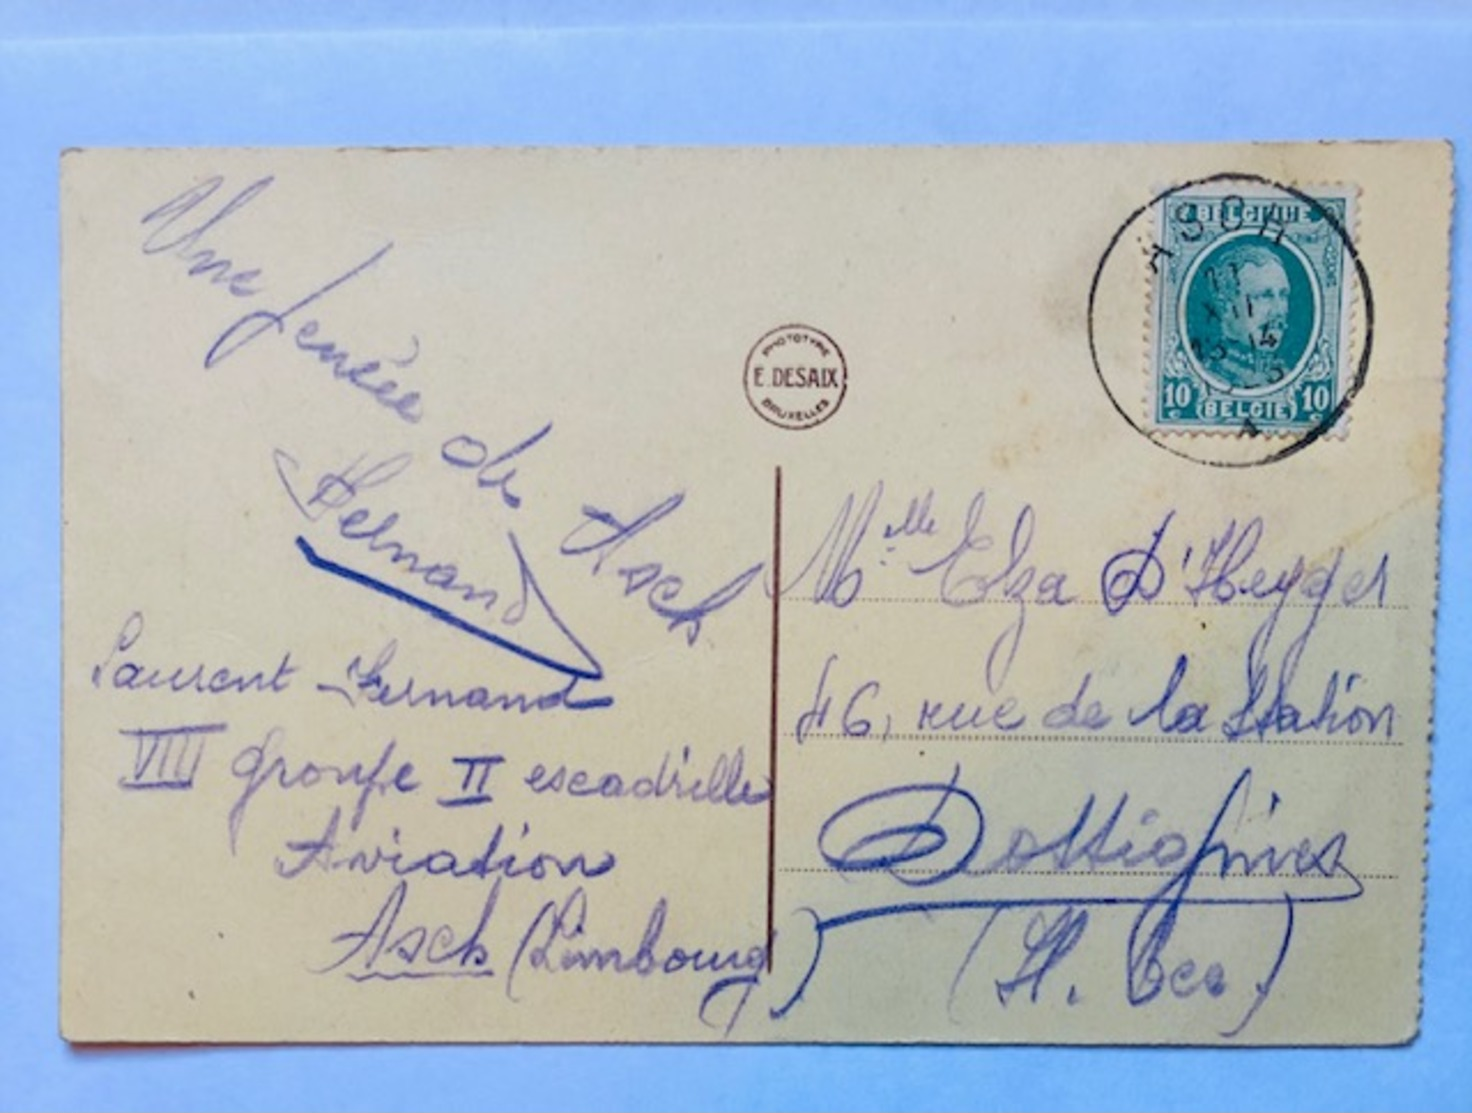 Une pensée de Asch
Fernand
Laurent Fernand
VIII groupe II escadrille
Aviation
Asch (Limbourg)
PHOTOTYPIE
E. DESAIX
BRUXELLES
ASCH
11
XII
13-14
A
BELGIQUE
10 BELGIE 10
Mlle Elza D'Heyger
46, rue de la Station
Dottignies
(H. Occ.)